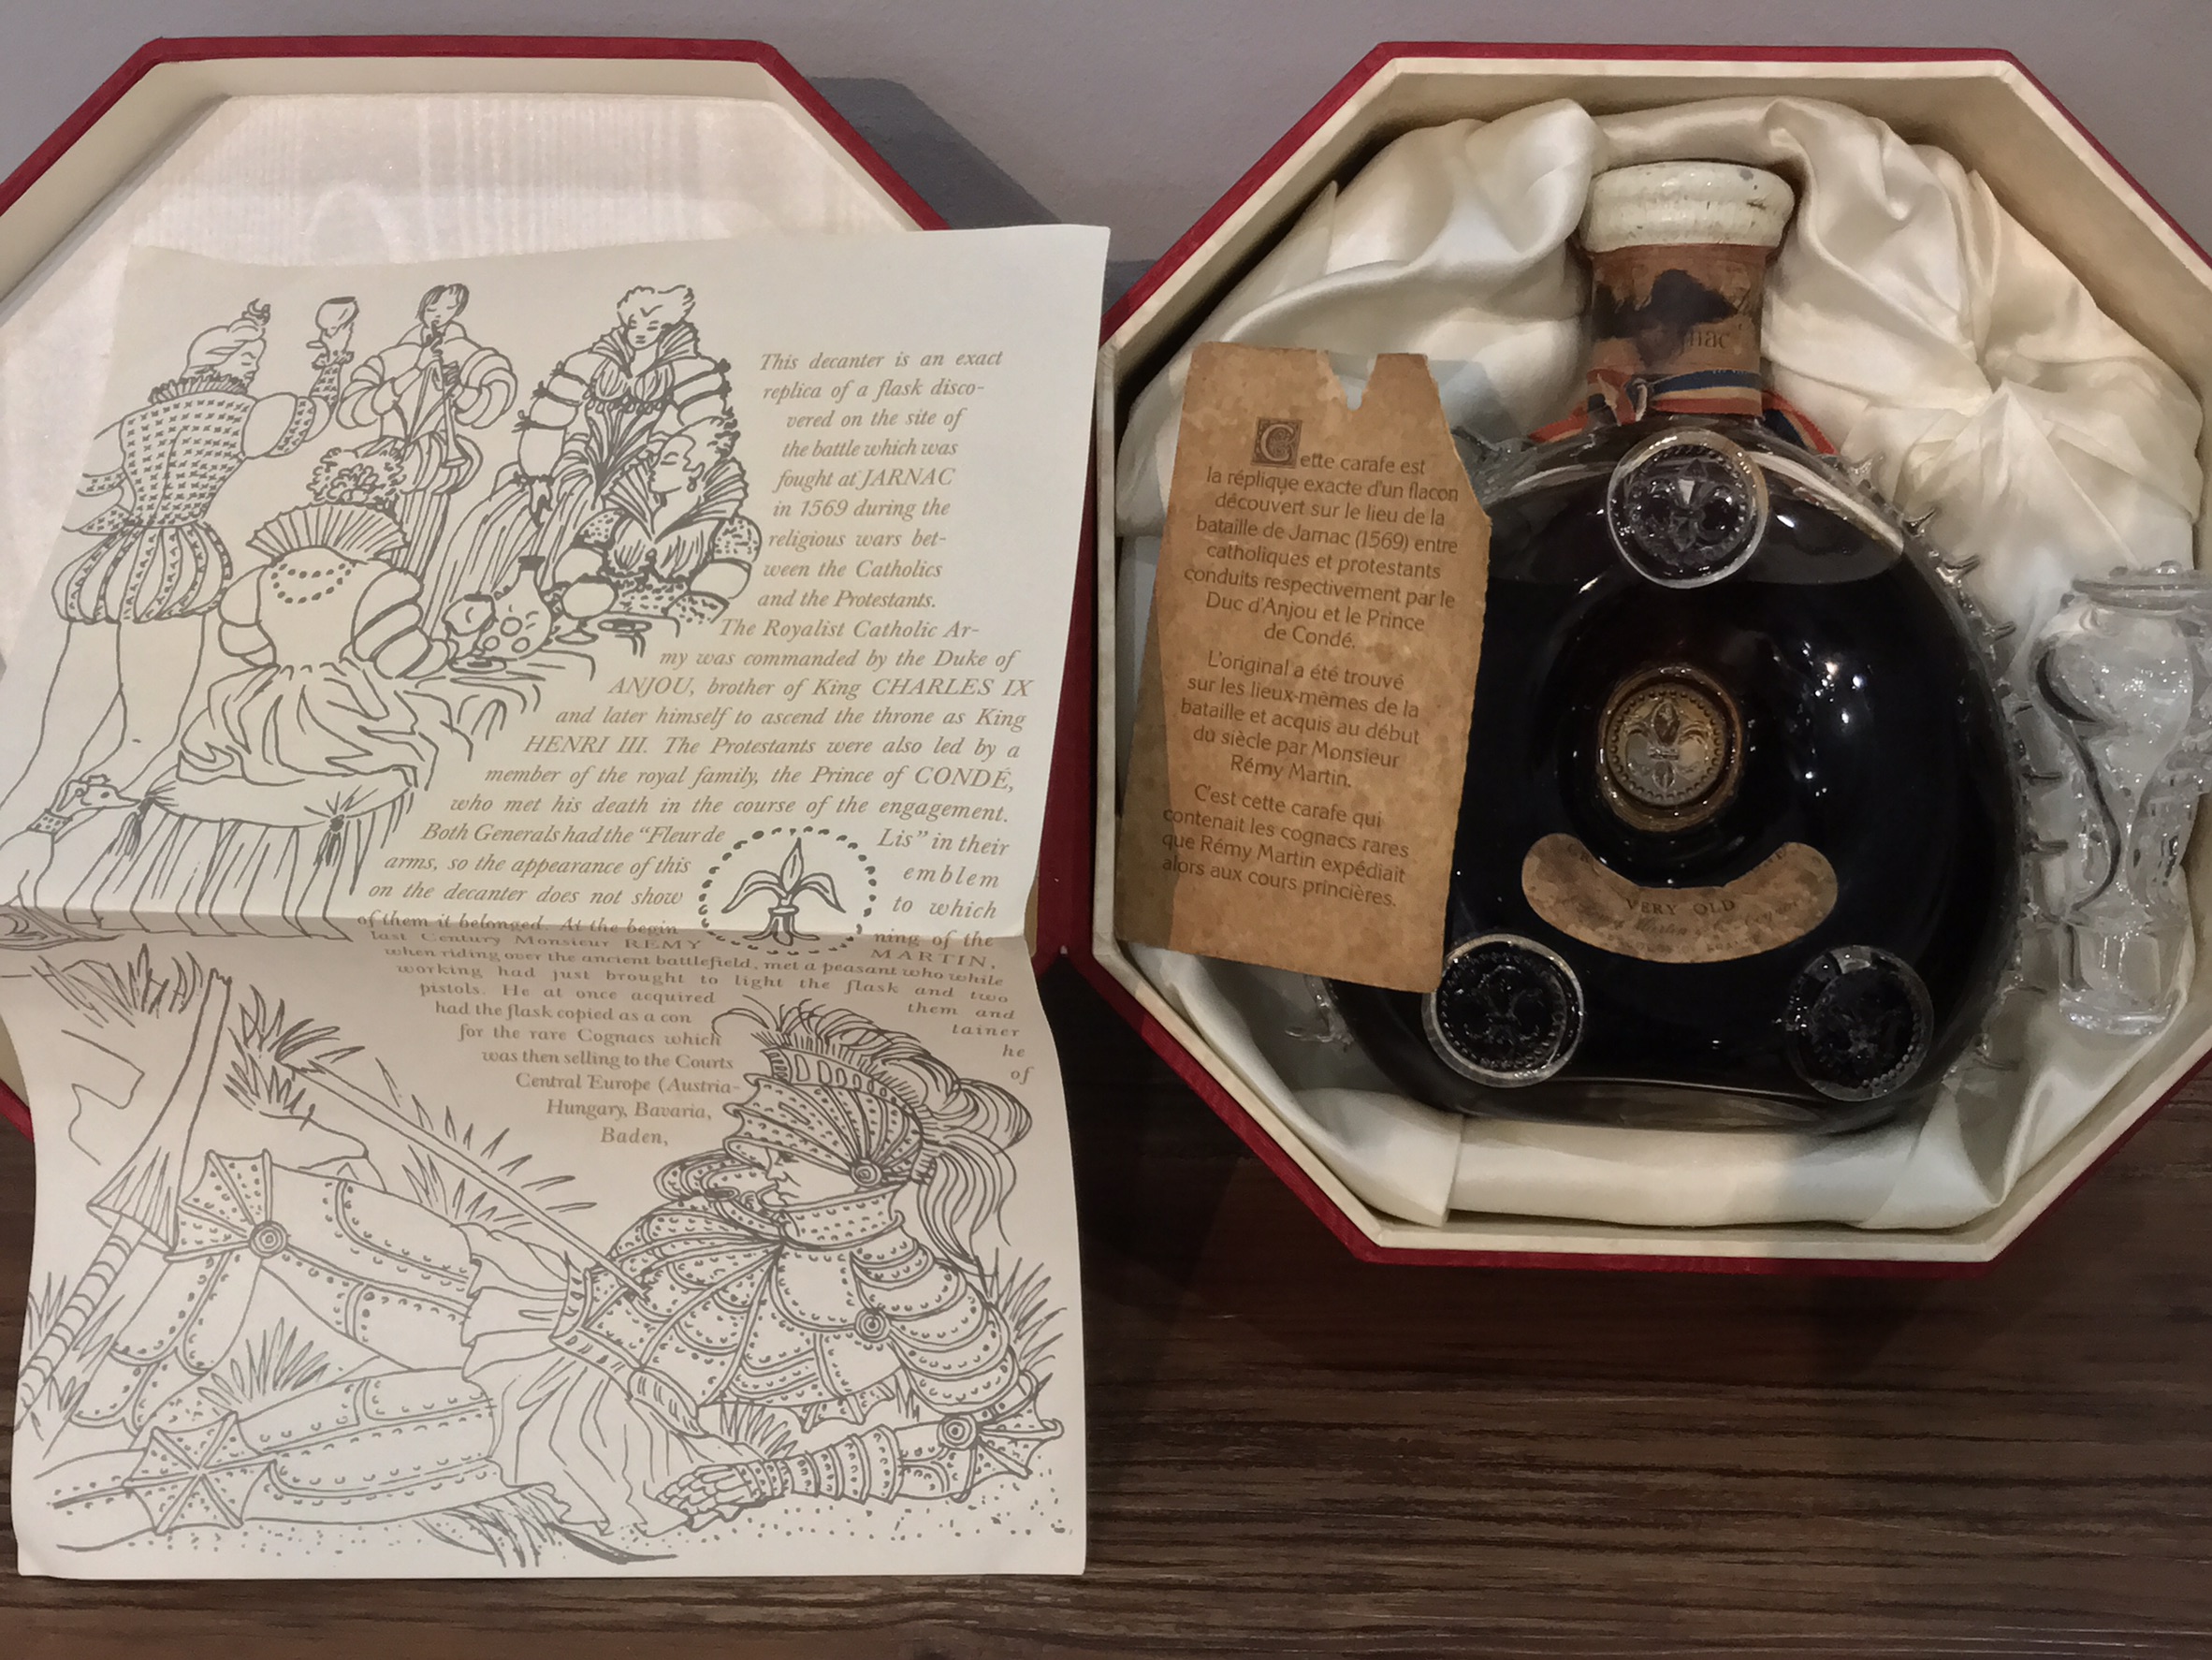 This decanter is an exact
replica of a flask disco-
vered on the site of
the battle which was
fought at JARNAC
in 1569 during the
religious wars bet-
ween the Catholics
and the Protestants.
The Royalist Catholic Ar-
my was commanded by the Duke of
ANJOU, brother of King CHARLES IX
and later himself to ascend the throne as King
HENRI III. The Protestants were also led by a
member of the royal family, the Prince of CONDÉ,
who met his death in the course of the engagement.
Both Generals had the "Fleur de Lis" in their
arms, so the appearance of this emblem
on the decanter does not show to which
of them it belonged. At the begin ning of the
last Century Monsieur REMY MARTIN,
when riding over the ancient battlefield, met a peasant who while
working had just brought to light the flask and two
pistols. He at once acquired them and
had the flask copied as a con tainer
for the rare Cognacs which he
was then selling to the Courts of
Central Europe (Austria-
Hungary, Bavaria,
Baden,
Cette carafe est
la réplique exacte d'un flacon
découvert sur le lieu de la
bataille de Jarnac (1569) entre
catholiques et protestants
conduits respectivement par le
Duc d'Anjou et le Prince
de Condé.
L'original a été trouvé
sur les lieux-mêmes de la
bataille et acquis au début
du siècle par Monsieur
Rémy Martin.
C'est cette carafe qui
contenait les cognacs rares
que Rémy Martin expédiait
alors aux cours princières.
VERY OLD